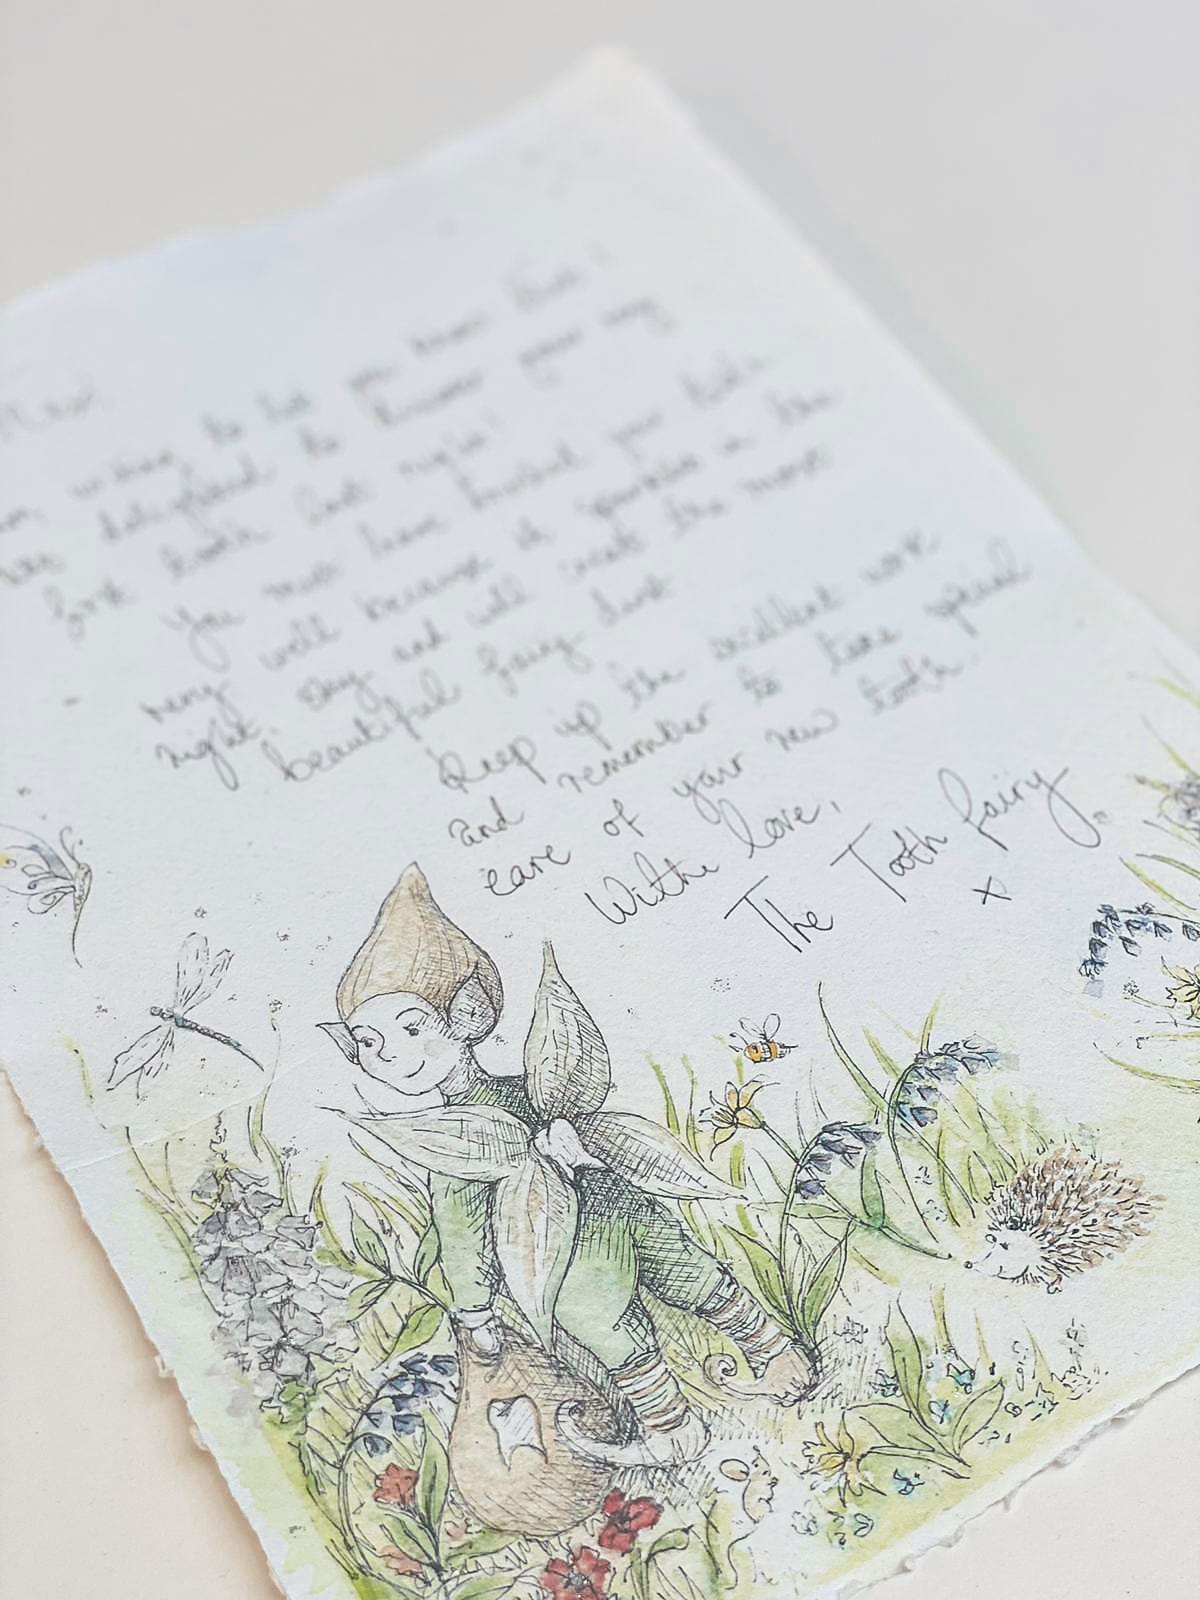 writing to let you know that I
delighted to discover your very
first tooth last night!
You must have brushed your teeth
very well because it sparkles in the
night sky and will create the most
beautiful fairy dust
Keep up the excellent work
and remember to take special
care of your new tooth.
Withe love,
The Tooth fairy
x